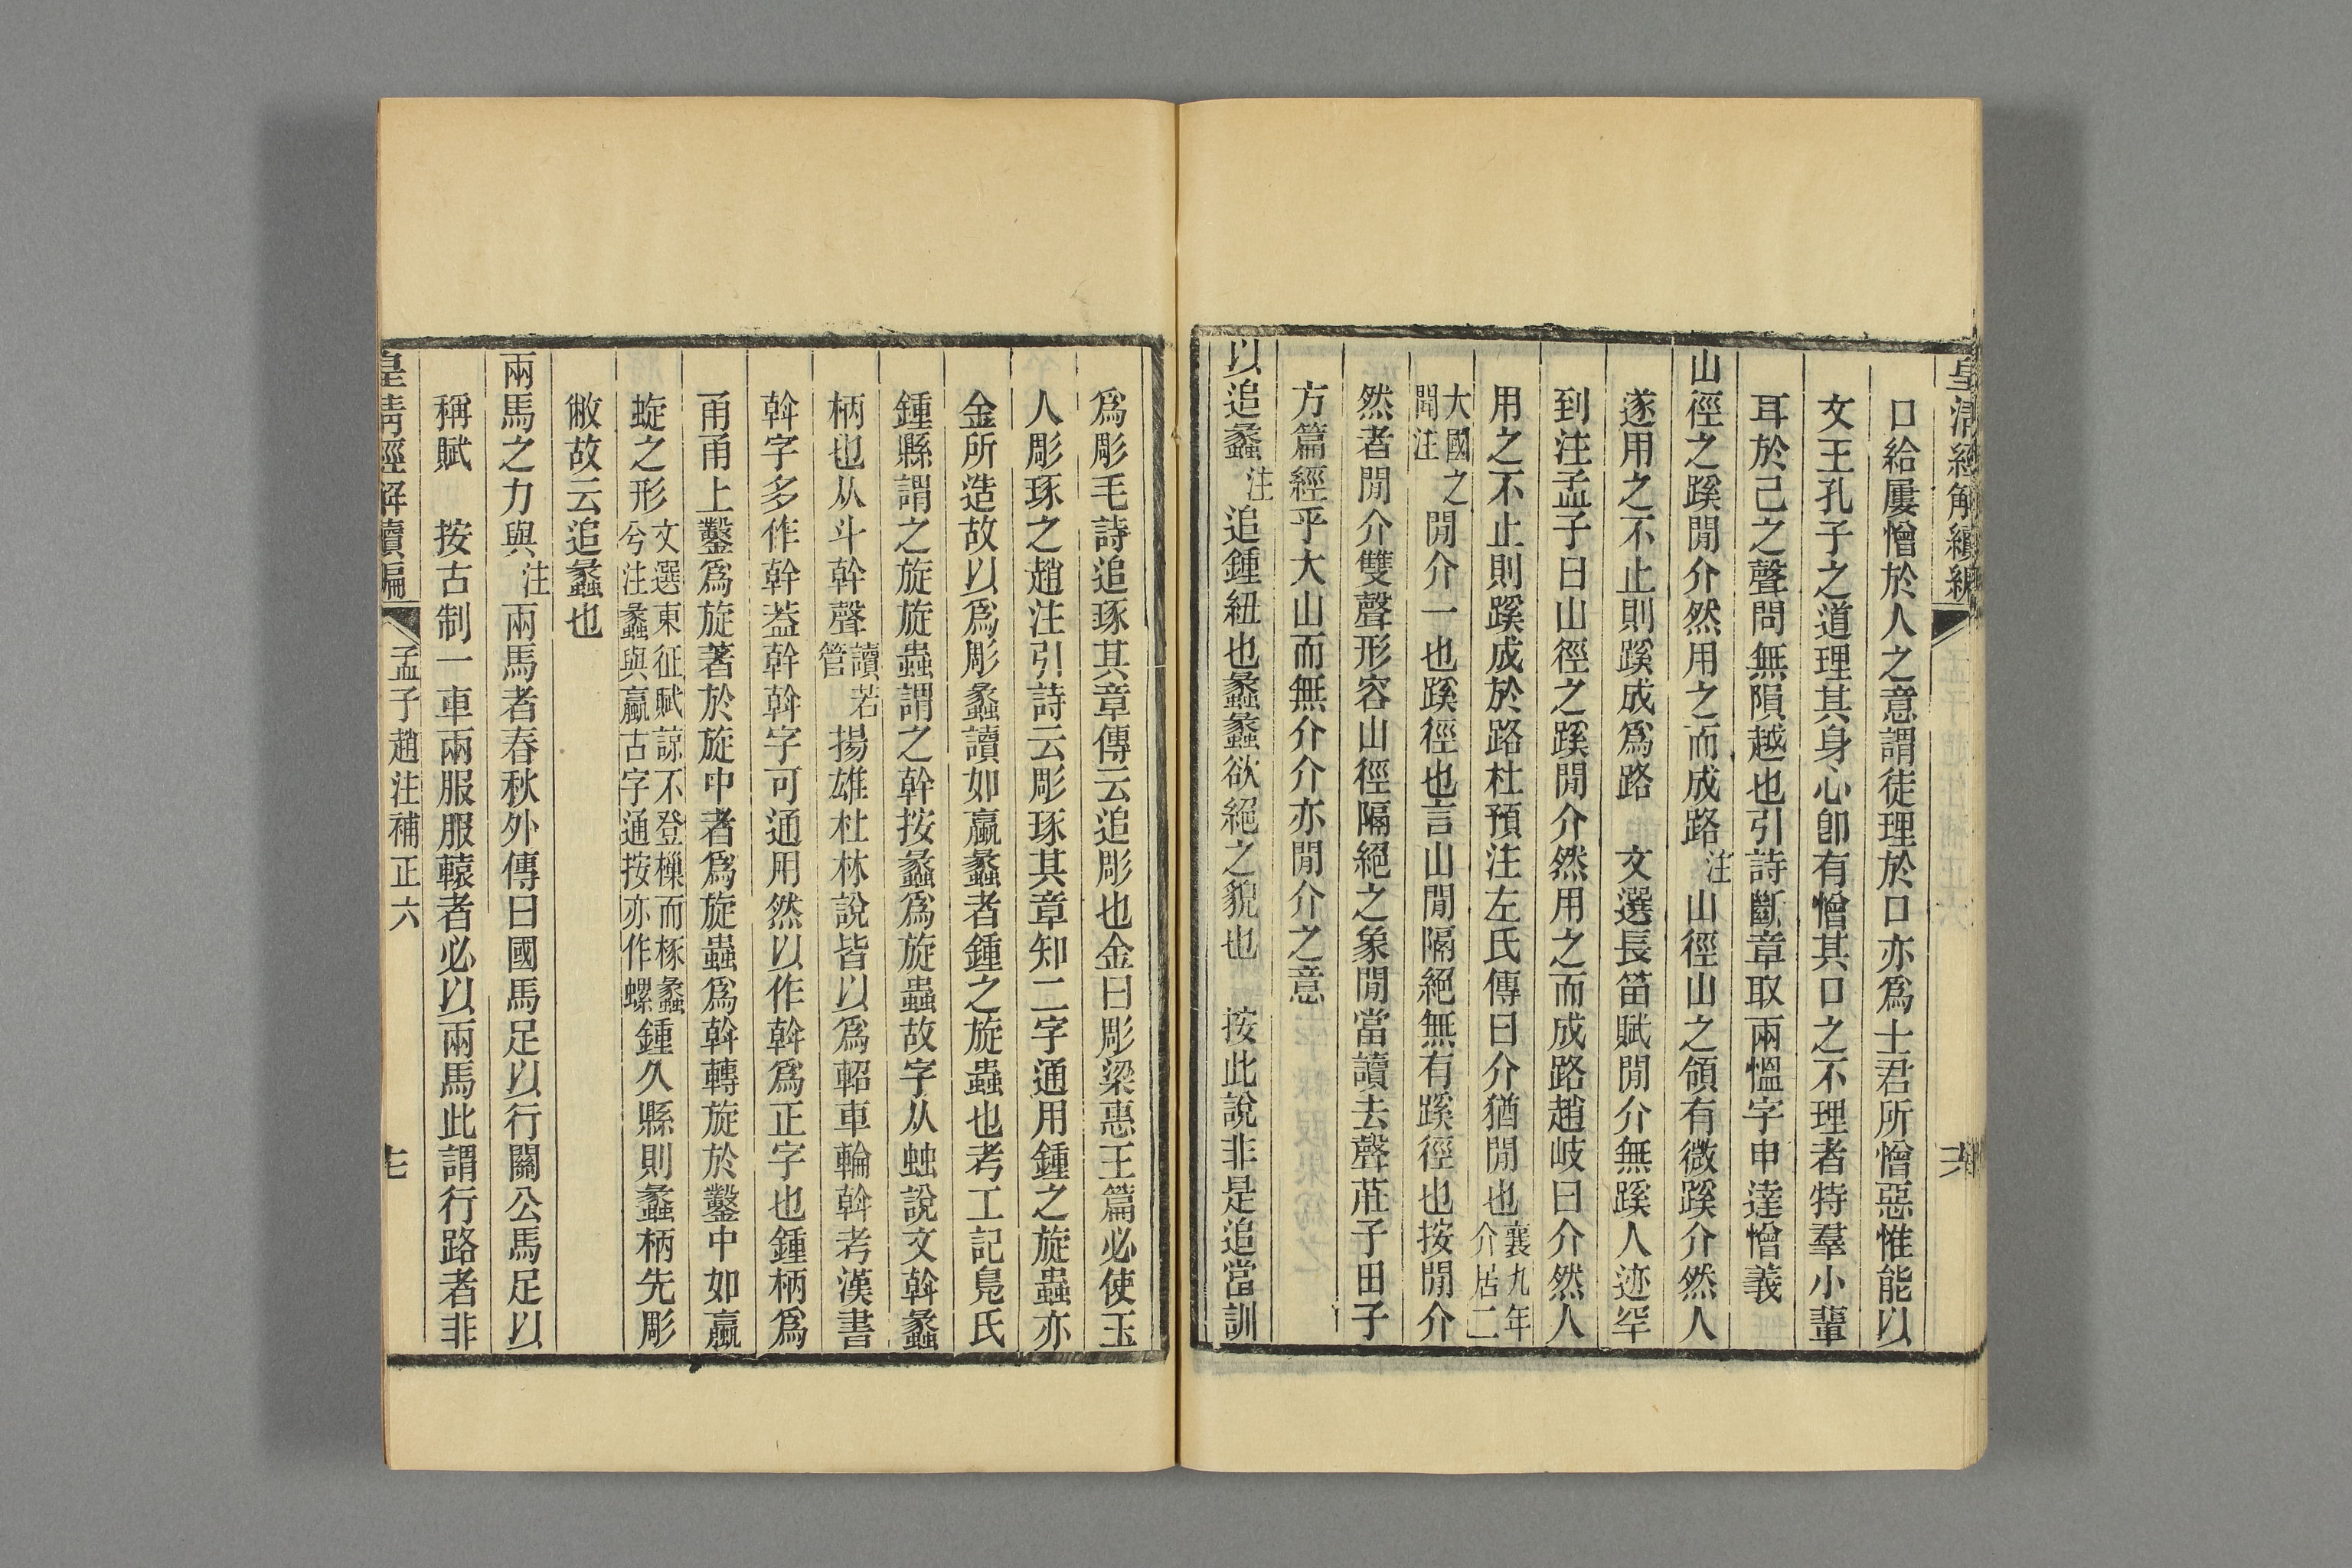 皇清經解續編
六
口給屢憎於人之意謂徒理於口亦爲士君所憎惡惟能以
文王孔子之道理其身心卽有憎其口之不理者特羣小輩
耳於己之聲問無隕越也引詩斷章取兩慍字申達憎義
山徑之蹊閒介然用之而成路注山徑山之領有微蹊介然人
遂用之不止則蹊成爲路　文選長笛賦閒介無蹊人迹罕
到注孟子曰山徑之蹊閒介然用之而成路趙岐曰介然人
用之不止則蹊成於路杜預注左氏傳曰介猶閒也襄九年介居二
大國之閒注閒介一也蹊徑也言山閒隔絕無有蹊徑也按閒介
然者閒介雙聲形容山徑隔絕之象閒當讀去聲莊子田子
方篇經乎大山而無介介亦閒介之意
以追蠡注追鍾紐也蠡蠡欲絕之貌也　按此說非是追當訓
爲彫毛詩追琢其章傳云追彫也金曰彫梁惠王篇必使玉
人彫琢之趙注引詩云彫琢其章知二字通用鍾之旋蟲亦
金所造故以爲彫蠡讀如蠃蠡者鍾之旋蟲也考工記鳧氏
鍾縣謂之旋旋蟲謂之幹按蠡爲旋蟲故字从䖵說文斡蠡
柄也从斗倝聲讀若管揚雄杜林說皆以爲軺車輪斡考漢書
斡字多作幹葢幹斡字可通用然以作斡爲正字也鍾柄爲
甬甬上鑿爲旋著於旋中者爲旋蟲爲斡轉旋於鑿中如蠃
蜁之形文選東征賦諒不登樔而椓蠡兮注蠡與蠃古字通按亦作螺鍾久縣則蠡柄先彫
敝故云追蠡也
兩馬之力與注兩馬者春秋外傳曰國馬足以行關公馬足以
稱賦　按古制一車兩服服轅者必以兩馬此謂行路者非
皇清經解續編
孟子趙注補正六
七